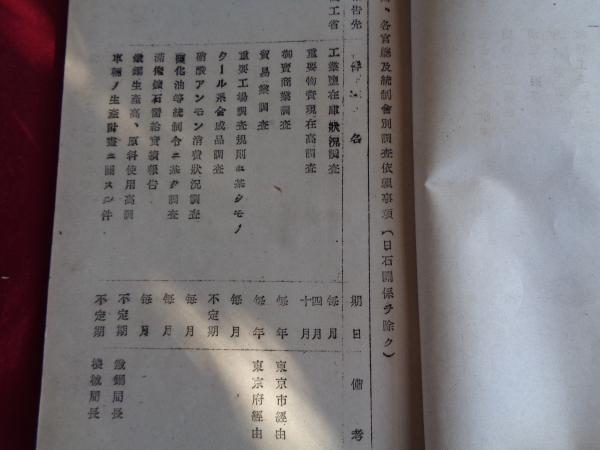 各官廳及統制會別調査依頼事項（日石關係ヲ除ク）
告先 名 期日 備考
工省
工業鹽在庫狀況調査 每月
重要物資現在高調査 四月十月
卸賣商業調査 每年 東京市經由
貿易業調査 每年 東京府經由
重要工場調査規則ニ基クモノ 每月
クール系合成品調査 不定期
硝酸アンモン消費狀況調査 每月
化油等統制令ニ基ク調査 每月
鑛石需給實績報告 每月
鐵鋼生產高、原料使用高調 不定期 鐵鋼局長
車輛ノ生產計畫ニ關スル件 不定期 機械局長